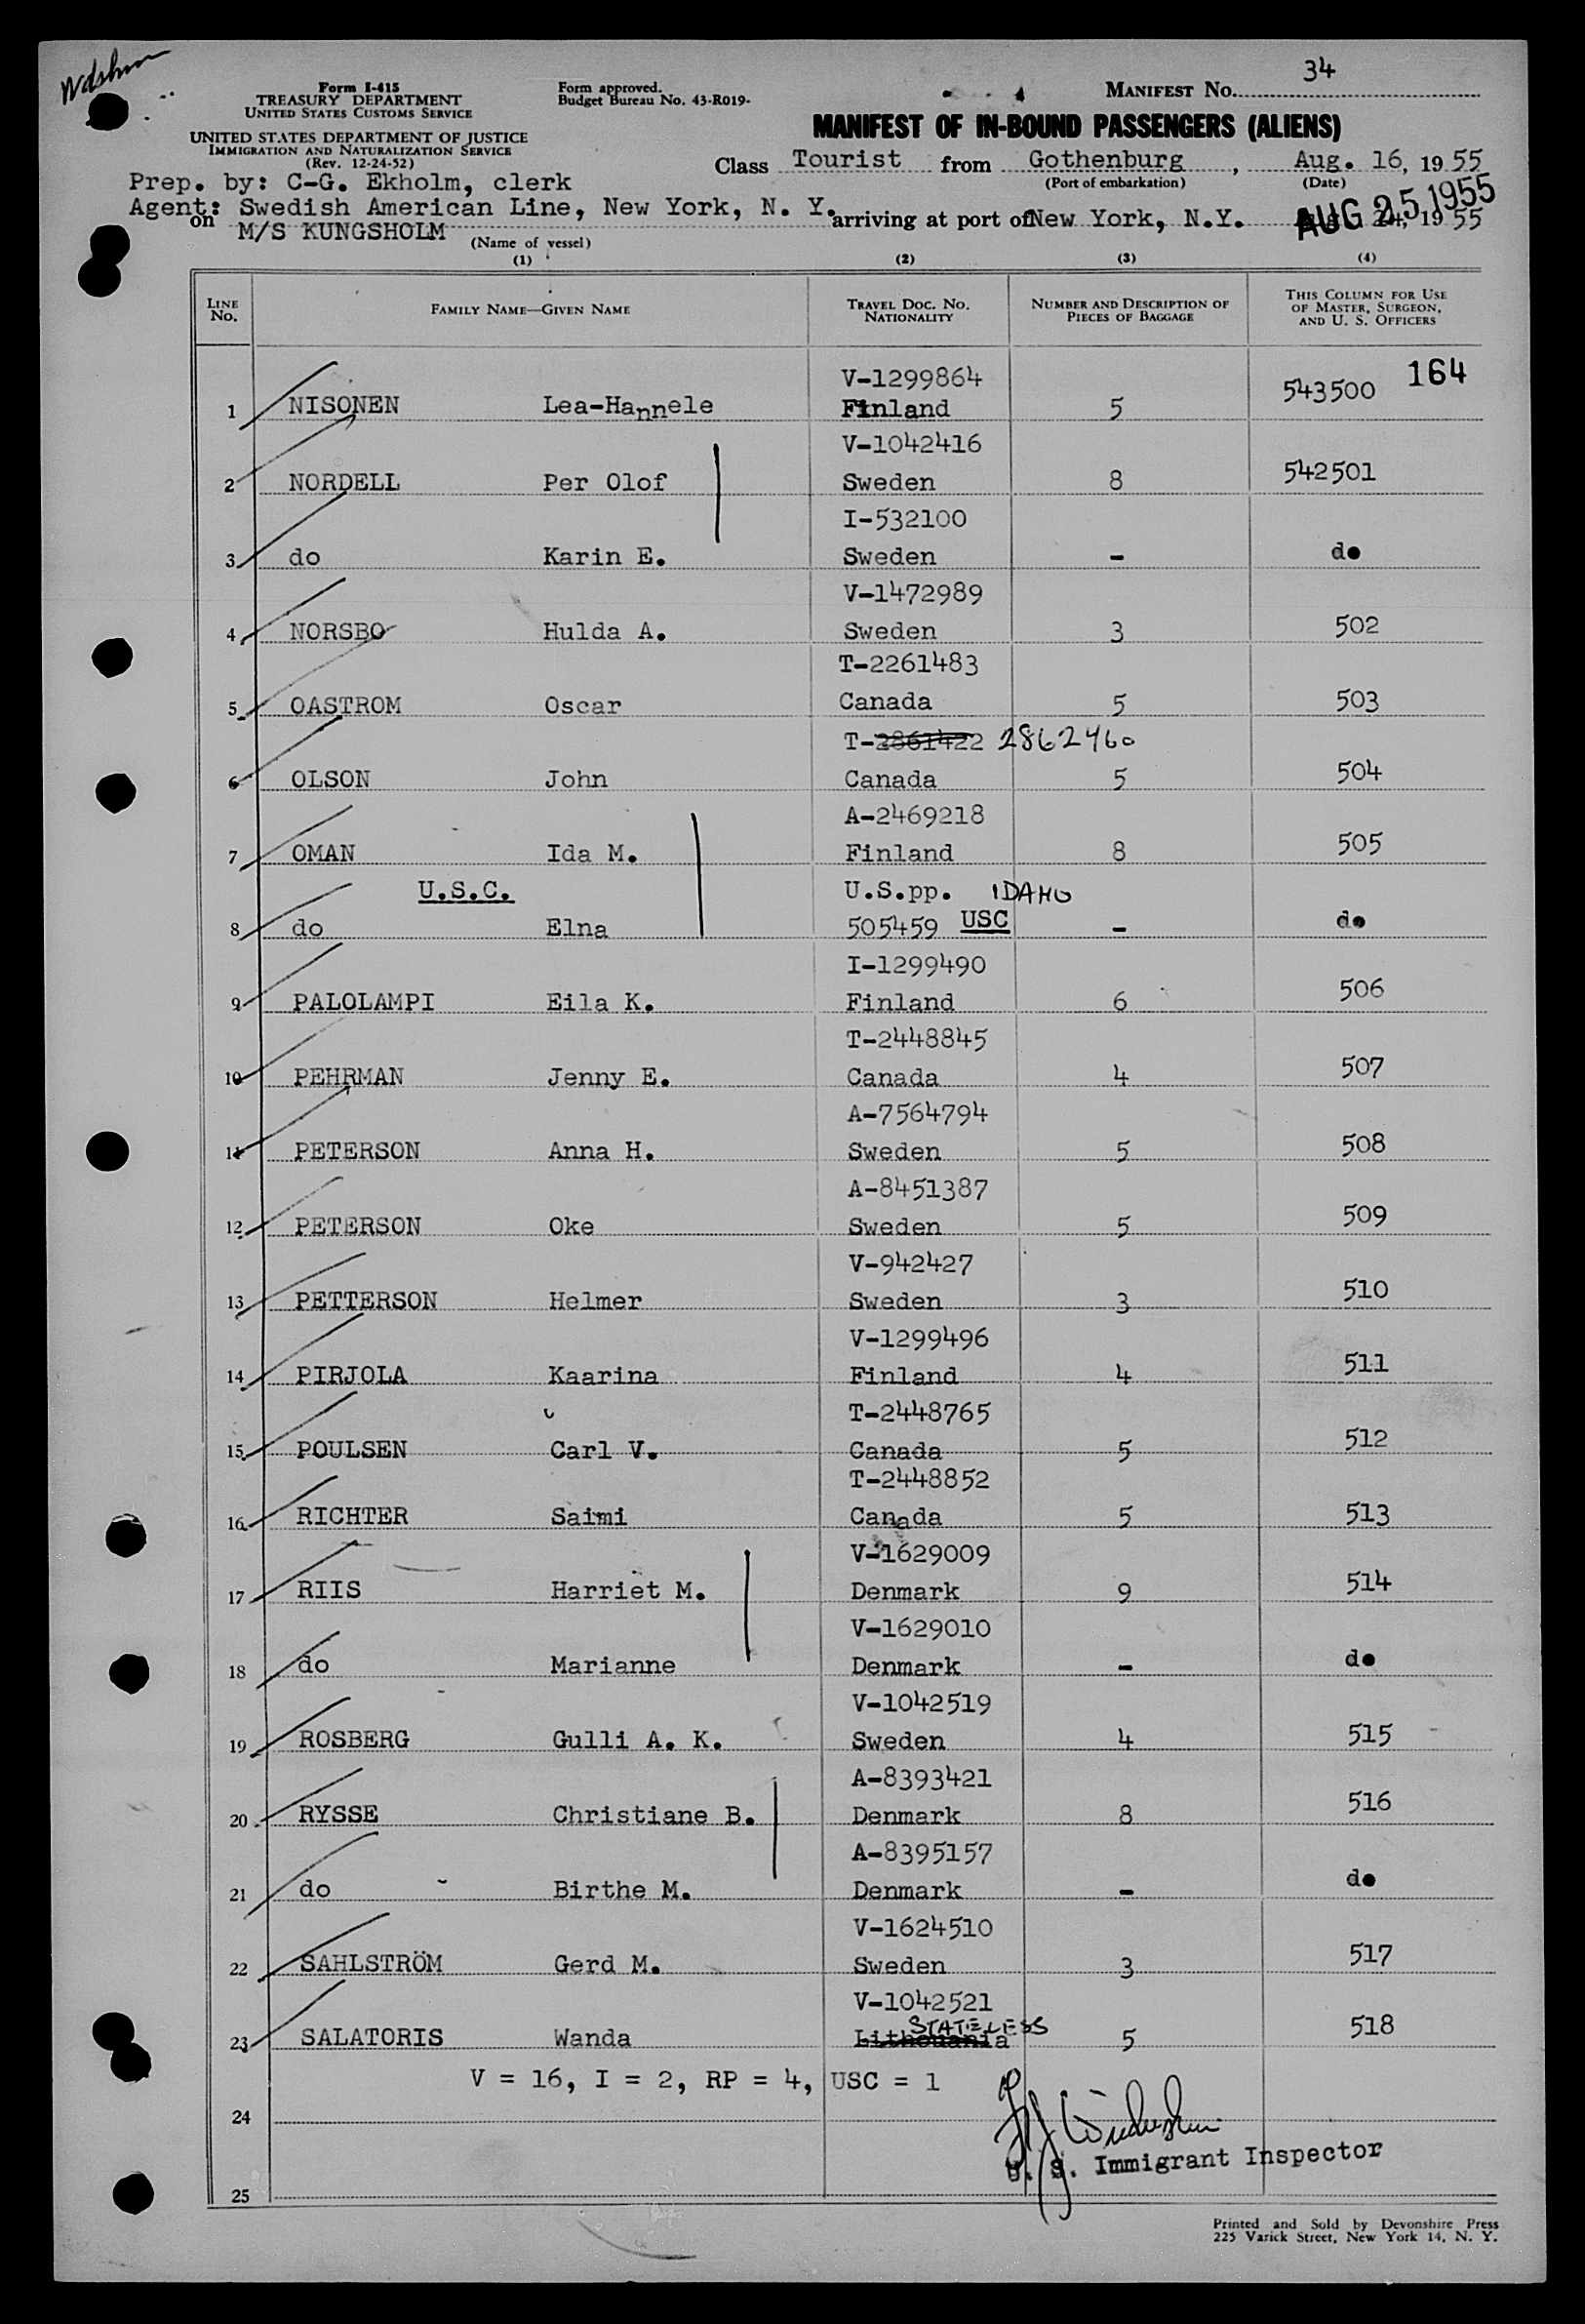 34
Form I-415
TREASURY DEPARTMENT
UNITED STATES CUSTOMS SERVICE
Form approved.
Budget Bureau No. 43-R019-
MANIFEST No.
UNITED STATES DEPARTMENT OF JUSTICE
IMMIGRATION AND NATURALIZATION SERVICE
(Rev. 12-24-52)
MANIFEST OF IN-BOUND PASSENGERS (ALIENS)
Class Tourist from Gothenburg, Aug. 16, 1955
(Port of embarkation) (Date)
Prep. by: C-G. Ekholm, clerk
Agent: Swedish American Line, New York, N. Y.
on M/S KUNGSHOLM arriving at port of New York, N.Y. 24, 1955
AUG 25 1955
(Name of vessel)
(1) (2) (3) (4)
LINE No. FAMILY NAME—GIVEN NAME TRAVEL DOC. NO. NATIONALITY NUMBER AND DESCRIPTION OF PIECES OF BAGGAGE THIS COLUMN FOR USE OF MASTER, SURGEON, AND U. S. OFFICERS
V-1299864 164
1 NISONEN Lea-Hannele Finland 5 543500
V-1042416
2 NORDELL Per Olof Sweden 8 542501
I-532100
3 do Karin E. Sweden - do
V-1472989
4 NORSBO Hulda A. Sweden 3 502
T-2261483
5 OASTROM Oscar Canada 5 503
T-2861422 2862460
6 OLSON John Canada 5 504
A-2469218
7 OMAN Ida M. Finland 8 505
U.S.C. U.S.pp. IDAHO
8 do Elna 505459 USC - do
I-1299490
9 PALOLAMPI Eila K. Finland 6 506
T-2448845
10 PEHRMAN Jenny E. Canada 4 507
A-7564794
11 PETERSON Anna H. Sweden 5 508
A-8451387
12 PETERSON Oke Sweden 5 509
V-942427
13 PETTERSON Helmer Sweden 3 510
V-1299496
14 PIRJOLA Kaarina Finland 4 511
T-2448765
15 POULSEN Carl V. Canada 5 512
T-2448852
16 RICHTER Saimi Canada 5 513
V-1629009
17 RIIS Harriet M. Denmark 9 514
V-1629010
18 do Marianne Denmark - do
V-1042519
19 ROSBERG Gulli A. K. Sweden 4 515
A-8393421
20 RYSSE Christiane B. Denmark 8 516
A-8395157
21 do Birthe M. Denmark - do
V-1624510
22 SAHLSTRÖM Gerd M. Sweden 3 517
V-1042521
STATELESS
23 SALATORIS Wanda Lithouania 5 518
V = 16, I = 2, RP = 4, USC = 1
24
U. S. Immigrant Inspector
25
Printed and Sold by Devonshire Press
225 Varick Street, New York 14, N. Y.